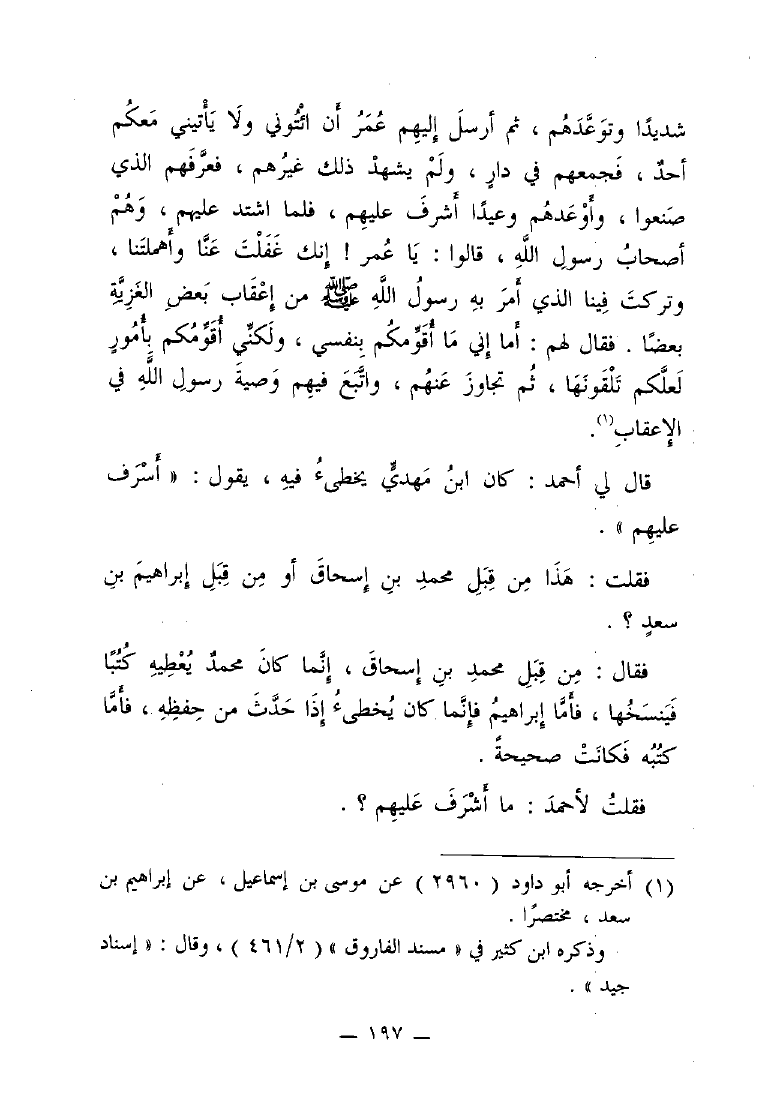 شديدًا وتوَعَّدَهُم ، ثم أرسلَ إليهِم عُمَرُ أَن ائْتُوني ولَا يَأْتيني مَعكُم
أحدٌ ، فَجمعهم في دارٍ ، ولَمْ يشهدْ ذلك غيرُهم ، فعرَّفَهم الذي
صنَعوا ، وأَوْعَدهُم وعيدًا أَشرفَ عليهِم ، فلما اشتد عليهِم ، وَهُمْ
أصحابُ رسولِ اللَّهِ ، قالوا : يَا عُمر ! إنك غَفَلْتَ عَنَّا وأَهملتَنا ،
وتركتَ فِينا الذي أَمرَ بهِ رسولُ اللَّهِ ﷺ من إعْقَاب بَعضِ الغَزِيَّةِ
بعضًا . فقال لهم : أَما إني مَا أُقوِّمكُم بِنفسي ، ولَكنِّي أُقوِّمُكم بِأُمُورٍ
لَعلَّكم تَلْقَونَهَا ، ثُم تجاوزَ عَنهُم ، واتَّبَعَ فيهِم وَصيةَ رسولِ اللَّهِ في
الإعقابِ(١).
قال لي أحمد : كان ابنُ مَهديٍّ يخطىءُ فيهِ ، يقول : « أَسْرَف
عليهِم » .
فقلت : هَذَا مِن قِبَلِ محمدِ بنِ إسحاقَ أو مِن قِبَلِ إبراهيمَ بنِ
سعدٍ ؟ .
فقال : مِن قِبَلِ محمدِ بنِ إسحاقَ ، إنَّما كانَ محمدٌ يُعْطِيهِ كُتُبًا
فَيَنسَخُها ، فَأمَّا إبراهيمُ فإنَّما كان يُخطىءُ إذَا حَدَّثَ من حِفظِهِ ، فأمَّا
كتُبُه فَكانَتْ صحيحةً .
فقلتُ لأحمدَ : ما أَشْرَفَ عَليهِم ؟ .
(١) أخرجه أبو داود ( ٢٩٦٠ ) عن موسى بن إسماعيل ، عن إبراهيم بن
سعد ، مختصرًا .
وذكره ابن كثير في « مسند الفاروق » ( ٤٦١/٢ ) ، وقال : « إسناد
جيد » .
— ١٩٧ —